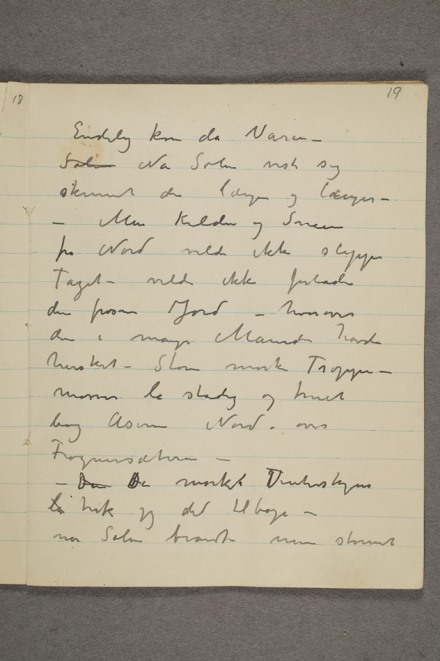 18
19
Endelig kom da Varen –
Solen Na Solen viste sig
skinnet den længer og længer –
– Men Kulden og Sneen
fra Nord vilde ikke slippe
Taget – vilde ikke forlade
den frosne Jord – hvorover
den i mange Maaneder havde
hersket – Store mørke Tropper –
masser la stadig og truet
bag Åserne Nord – over
Frognersæteren –
– Den Da mørke Vinterskyer
la trak sig det tilbage –
nar Solen brændte men skinnet